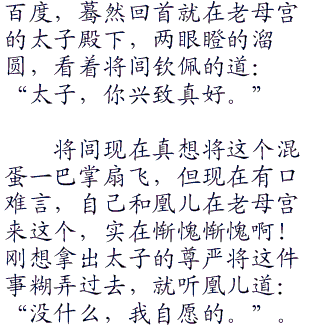 百度，蓦然回首就在老母宫
的太子殿下，两眼瞪的溜
圆，看着将闾钦佩的道：
“太子，你兴致真好。”
将闾现在真想将这个混
蛋一巴掌扇飞，但现在有口
难言，自己和凰儿在老母宫
来这个，实在惭愧惭愧啊！
刚想拿出太子的尊严将这件
事糊弄过去，就听凰儿道：
“没什么，我自愿的。”。